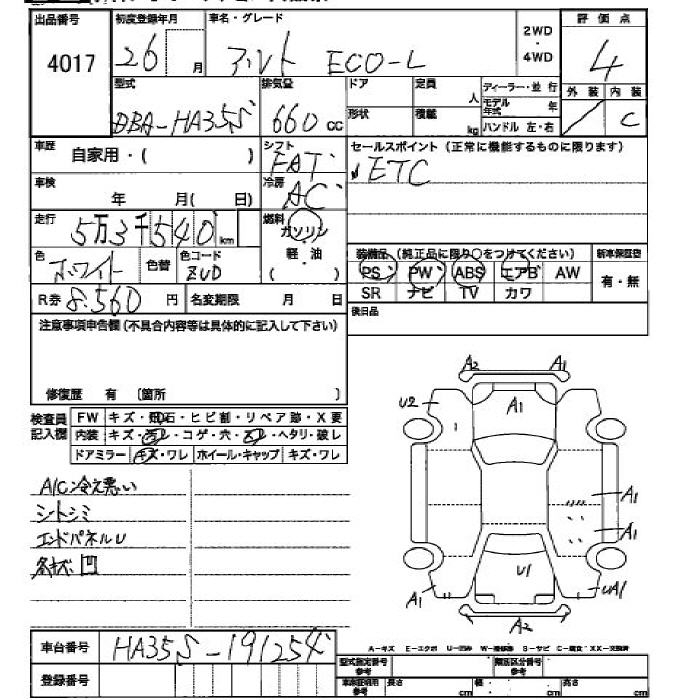 出品番号 初度登録年月 車名・グレード 2WD ・ 4WD 評価点
4017 26 月 アルト ECO-L 4
型式 排気量 ドア 定員 人 ディーラー・並行 外装 内装
DBA-HA35S 660 cc 形状 積載 kg モデル年式 年 ／ C
ハンドル 左・右
車歴 自家用・( ) シフト FAT セールスポイント(正常に機能するものに限ります)
車検 年 月( 日) 冷房 AC ETC
走行 5万3千540 km 燃料 ガソリン
軽・油 ( )
色 ホワイト 色替 色コード ZVD
装備品(純正品に限り○をつけてください) 新車保証型
PS PW ABS エアB AW 有・無
SR ナビ TV カワ
R券 8.560 円 名変期限 月 日
後日品
注意事項申告欄(不具合内容等は具体的に記入して下さい)
修復歴 有 〔箇所 〕
検査員記入欄 FW キズ・飛石・ヒビ割・リペア跡・X要
内装 キズ・汚レ・コゲ・穴・スレ・ヘタリ・破レ
ドアミラー キズ・ワレ ホイール・キャップ キズ・ワレ
A/C冷え悪い
シートシミ
エンドパネルU
各キズ凹
A2 A1
U2 A1
A1
A1
U1
A1 UA1
A2
車台番号 HA35S-191254
登録番号
A-キズ E-エクボ U-凹み W-補修跡 S-サビ C-腐食 XX-交換済
型式指定番号 参考 類別区分番号 参考
車庫証明用 参考 長さ cm 幅 cm 高さ cm